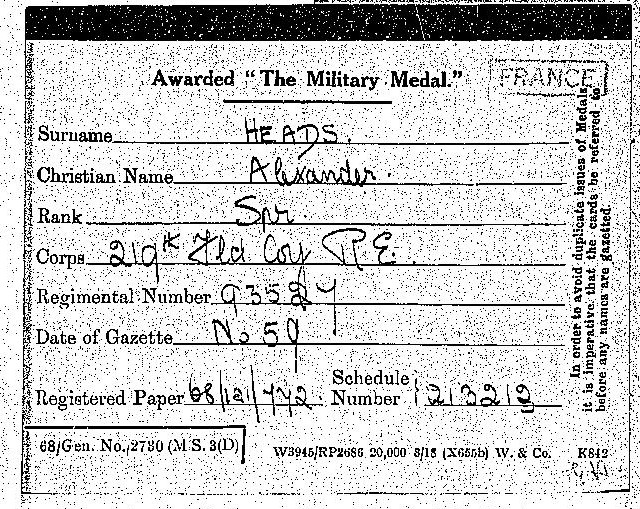 Awarded "The Military Medal."
FRANCE
Surname HEADS.
Christian Name Alexander.
Rank Spr.
Corps 219th Fld Coy R.E.
Regimental Number 93527
Date of Gazette No 59
Registered Paper 68/121/772. Schedule Number 213212
68/Gen. No./2730 (M.S. 3(D)
W3945/RP2686 20,000 3/18 (X655b) W. & Co. K842
In order to avoid duplicate issues of Medals,
it is imperative that the cards be referred to
before any names are gazetted.